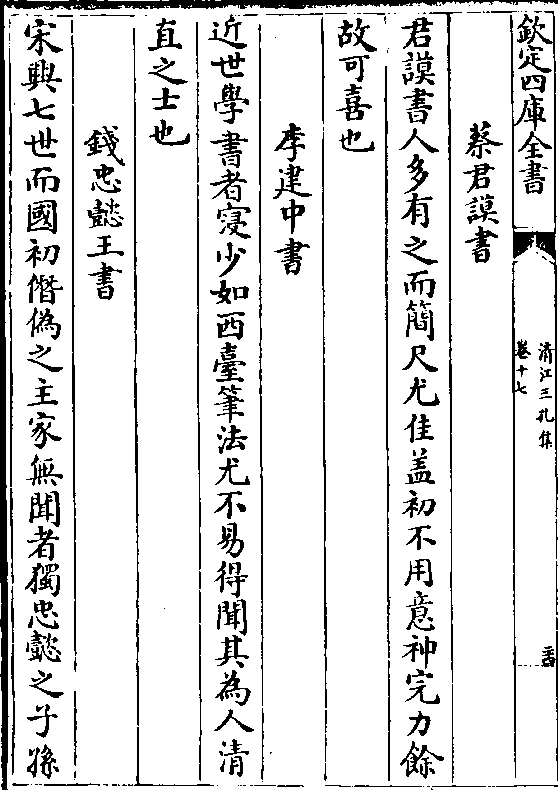 欽定四庫全書
清江三孔集
卷十七
蔡君謨書
君謨書人多有之而簡尺尤佳盖初不用意神完力餘
故可喜也
李建中書
近世學書者寖少如西臺筆法尤不易得聞其為人清
直之士也
錢忠懿王書
宋興七世而國初僭偽之主家無聞者獨忠懿之子孫